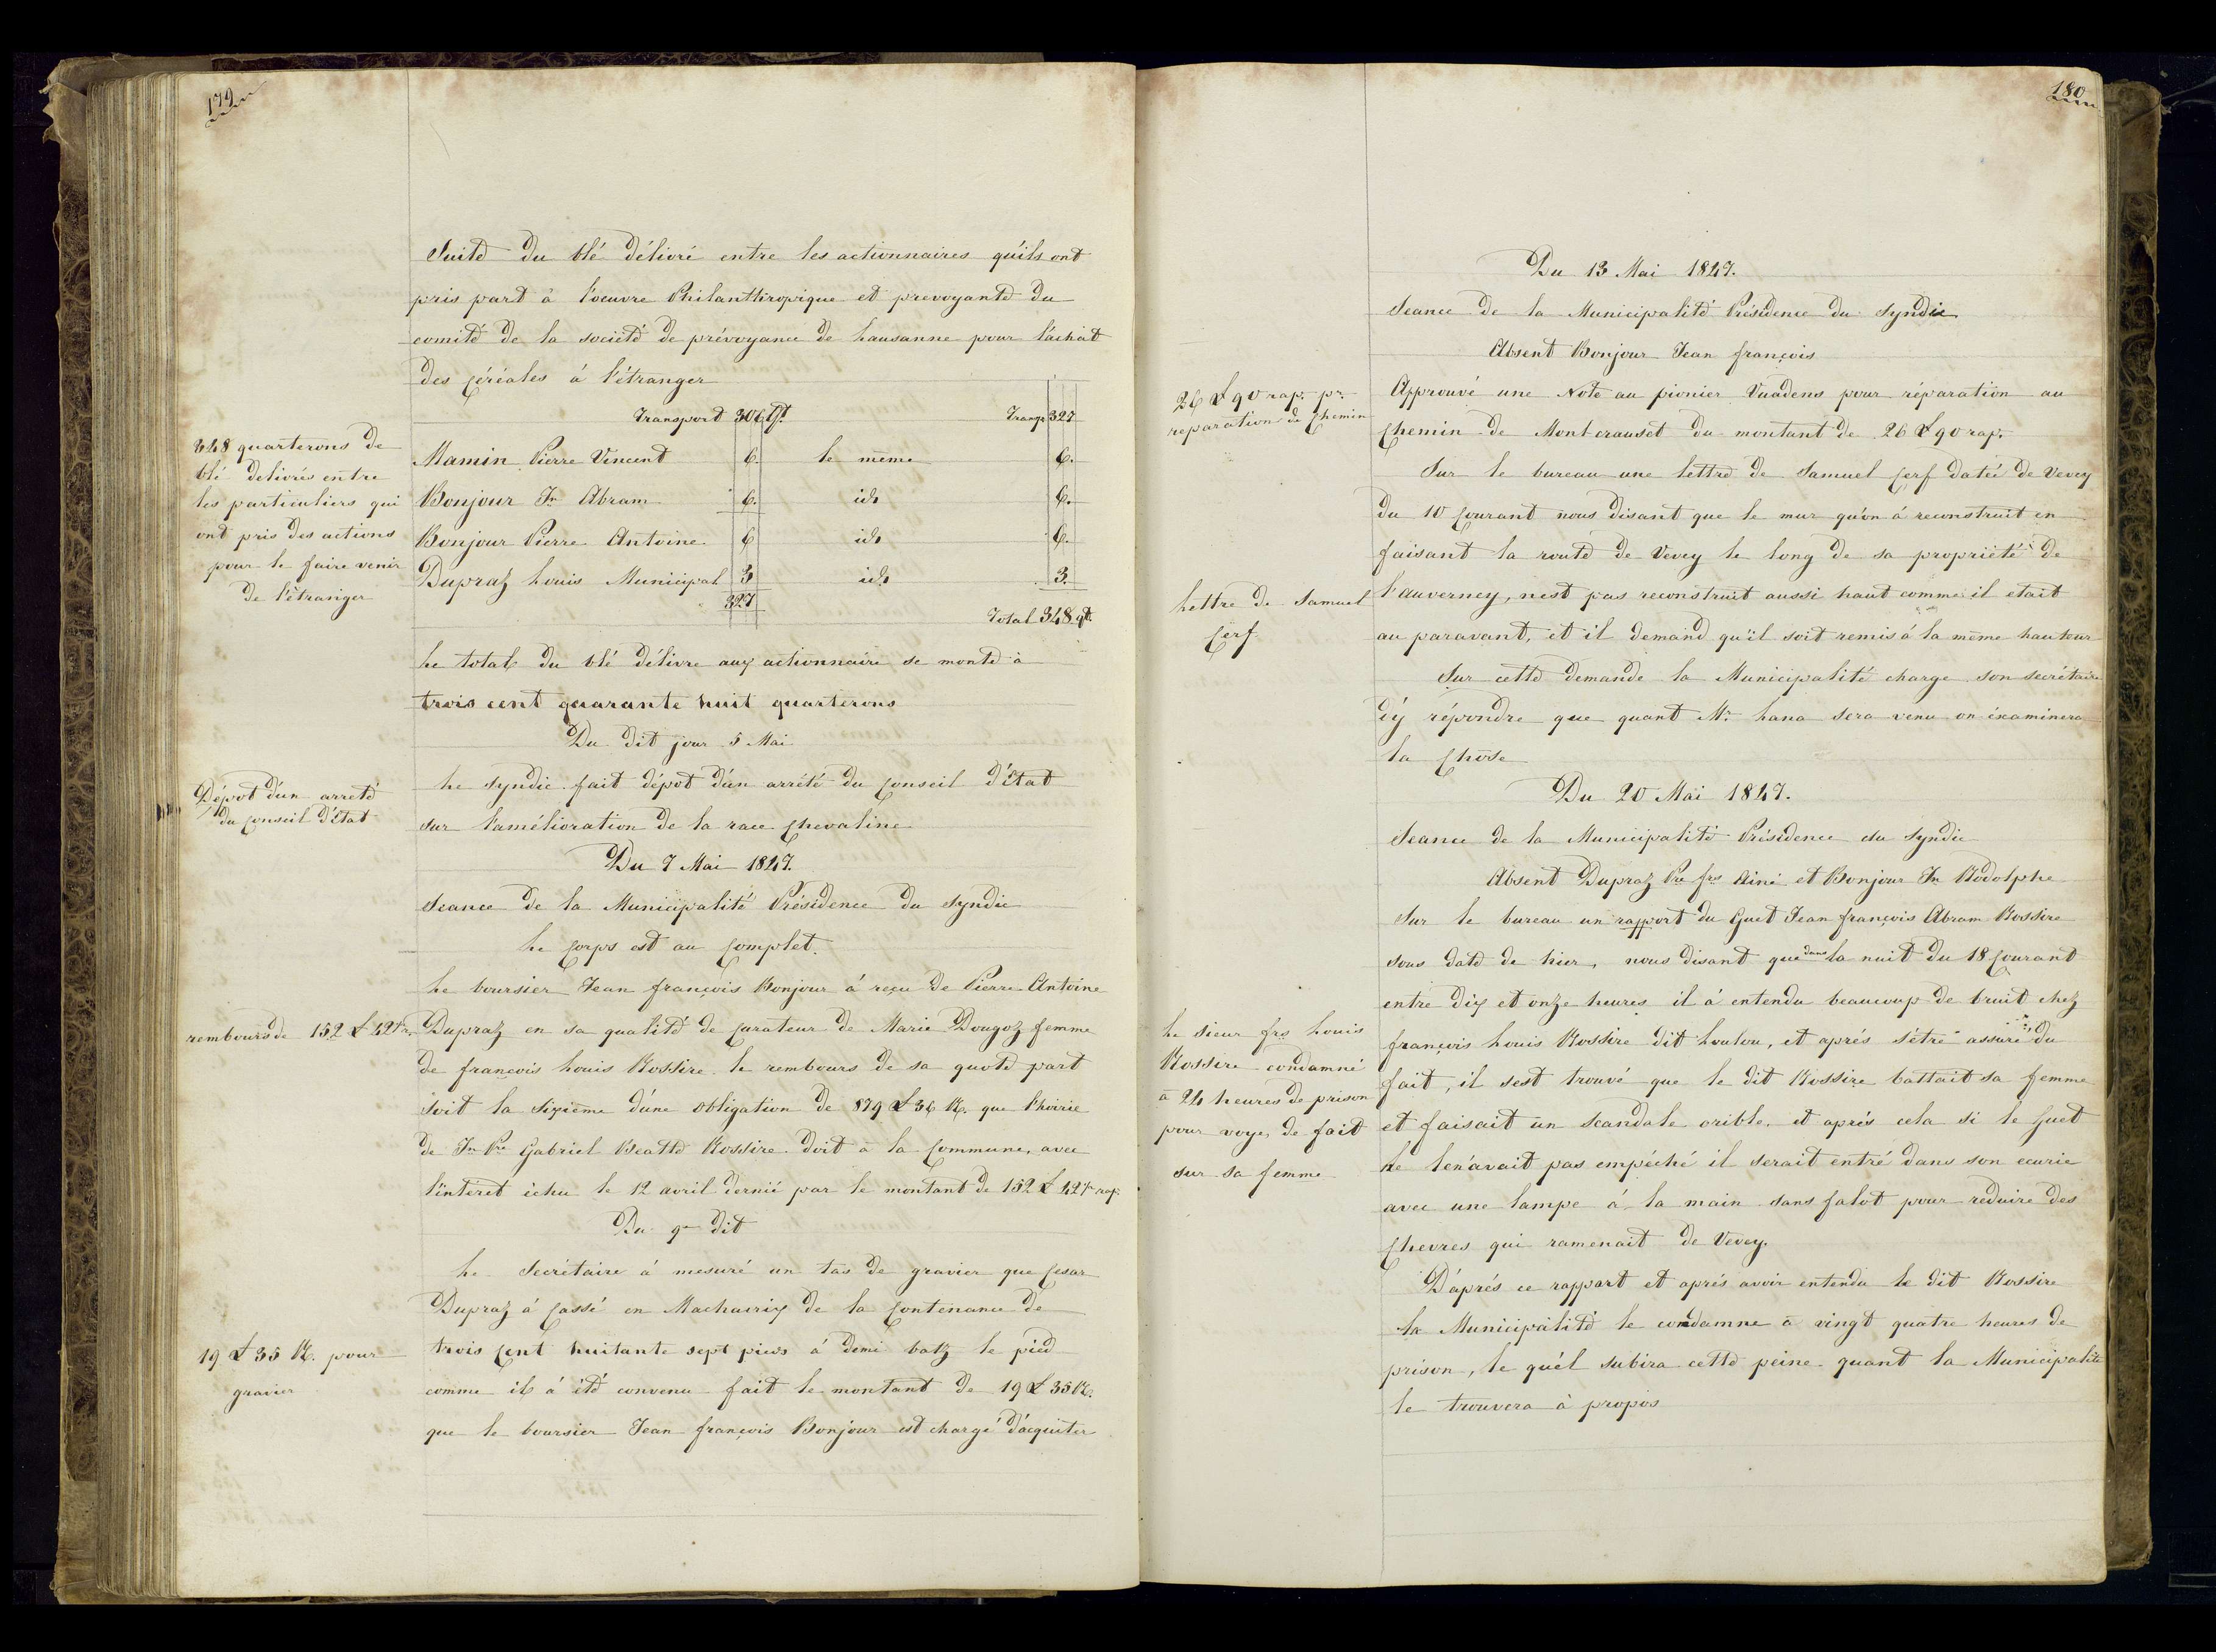 179
Suite du blé délivré entre les actionnaires qu'ils ont
pris part à l'oeuvre Philanthropique et prevoyante du
comité de la société de prévoyance de Lausanne pour l'achat
des céréales à l'étranger
Transport 306 qt. Transp 327
348 quarterons de
blé delivrés entre
les particuliers qui
ont pris des actions
pour le faire venir
de l'étranger
Mamin Pierre Vincent 6. le même 6.
Bonjour Jn Abram 6. id 6.
Bonjour Pierre Antoine 6 id 6.
Dupraz Louis Municipal 3 id 3.
327
Total 348 qt.
Le total du blé délivre aux actionnaire se monte à
trois cent quarante huit quarterons
Du dit jour 5 Mai
Dépot d'un arreté
du Conseil d'Etat
Le Syndic fait dépot d'un arrêté du Conseil d'Etat
sur l'amélioration de la race Chevaline
Du 7 Mai 1847.
Seance de la Municipalité Présidence du Syndic
Le Corps est au Complet.
Le boursier Jean françois Bonjour á reçu de Pierre Antoine
rembours de 152 £ 42
Dupraz en sa qualité de Curateur de Marie Dougoz femme
de françois Louis Rossire le rembours de sa quote part
soit la Sixième d'une Obligation de 879 £ 36 R. que l'hoirie
de Jn Pre Gabriel Beatte Rossire doit à la Commune, avec
l'interet échu le 12 avril dernié par le montant de 152 £ 42 rap.
Du 9 dit
Le Secrétaire á mesuré un tas de gravier que Cesar
Dupraz á Cassé en Machairix de la Contenance de
19 £ 35 R. pour
gravier
trois Cent huitante sept pieds á demi batz le pied
comme il á été convenu fait le montant de 19 £ 35 R.
que le boursier Jean françois Bonjour est chargé d'acquiter
180
Du 13 Mai 1847.
Seance de la Municipalité Présidence du Syndic
Absent Bonjour Jean françois
26 £ 90 rap. pr.
reparation de Chemin
Approuvé une Note au pionier Vuadens pour réparation au
Chemin de Mont crauset du montant de 26 £ 90 rap.
Sur le bureau une lettre de Samuel Cerf datée de Vevey
du 10 Courant nous disant que le mur qu'on á reconstruit en
faisant la route de Vevey le long de sa propriété de
Lettre de Samuel
Cerf
l'Auverney, n'est pas reconstruit aussi haut comme il etait
au paravant, et il demand qu'il soit remis á la même hauteur
Sur cette demande la Municipalité charge son secrétaire
d'y répondre que quant Mr. Lana sera venu on éxaminera
la Chose
Du 20 Mai 1847.
Seance de la Municipalité Présidence du Syndic
Absent Dupraz Pre frs Ainé et Bonjour Jn Rodolphe
Sur le bureau un rapport du Guet Jean françois Abram Rossire
sous date de hier, nous disant que dans la nuit du 18 Courant
entre dix et onze heures il á entendu beaucoup de bruit chez
Le Sieur frs Louis
Rossire condamné
à 24 heures de prison
pour voye de fait
sur sa femme
françois Louis Rossire dit Loulou, et aprés s'étre assuré du
fait, il s'est trouvé que le dit Rossire battait sa femme
et faisait un Scandale orible, et aprés cela si le Guet
ne len'avait pas empéché il serait entré dans son ecurie
avec une lampe á la main sans falot pour reduire des
Chevres qui ramenait de Vevey.
D'aprés ce rappart et aprés avoir entendu le dit Rossire
la Municipalité le condamne à vingt quatre heures de
prison, le qu'el subira cette peine quant la Municipalité
le trouvera à propos